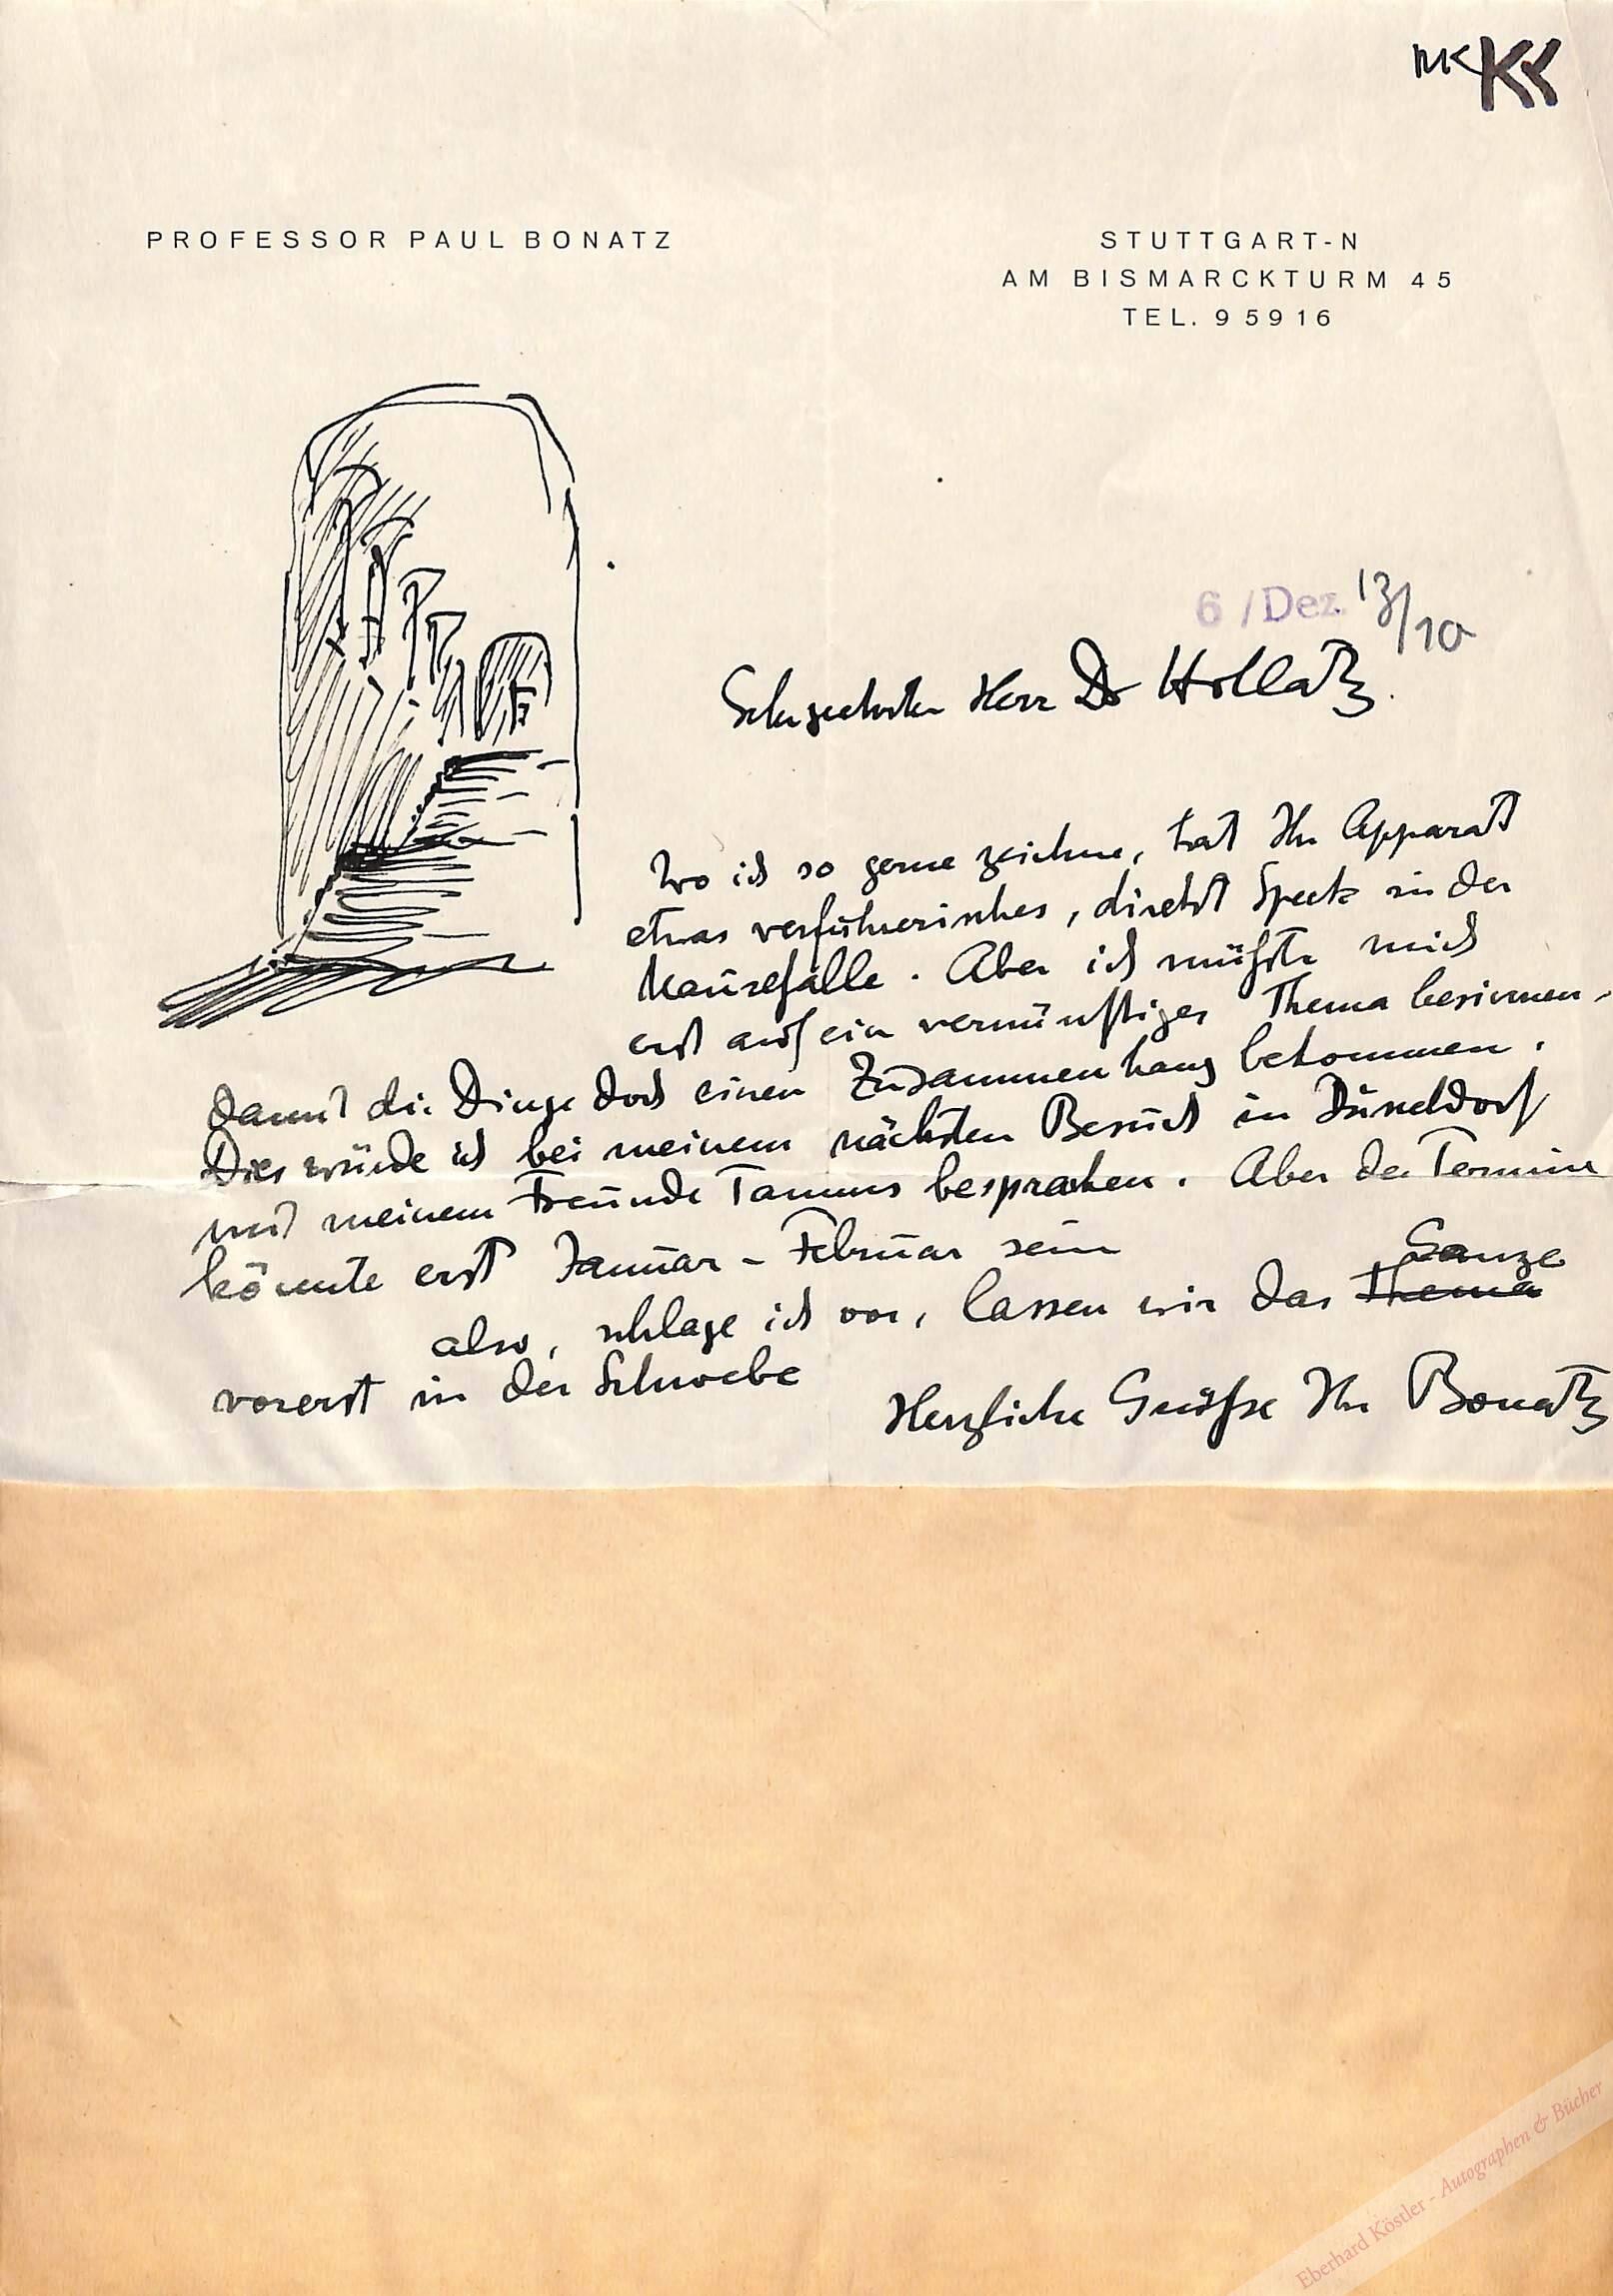 KK
PROFESSOR PAUL BONATZ
STUTTGART-N
AM BISMARCKTURM 45
TEL. 95916
6 / Dez. 13/10
Sehr geehrter Herr Dr Hollatz.
Wo ich so gerne zeichne, hat Ihr Apparat
etwas verführerisches, direkt Speck in der
Mausefalle. Aber ich müßte mich
erst auf ein vernünftiges Thema besinnen,
damit die Dinge doch einen Zusammenhang bekommen.
Dies würde ich bei meinem nächsten Besuch in Düsseldorf
mit meinem Freunde Tamms besprechen. Aber der Termin
könnte erst Januar - Februar sein
also, schlage ich vor, lassen wir das Thema Ganze
vorerst in der Schwebe
Herzliche Grüße Ihr Bonatz
Eberhard Köstler - Autographen & Bücher